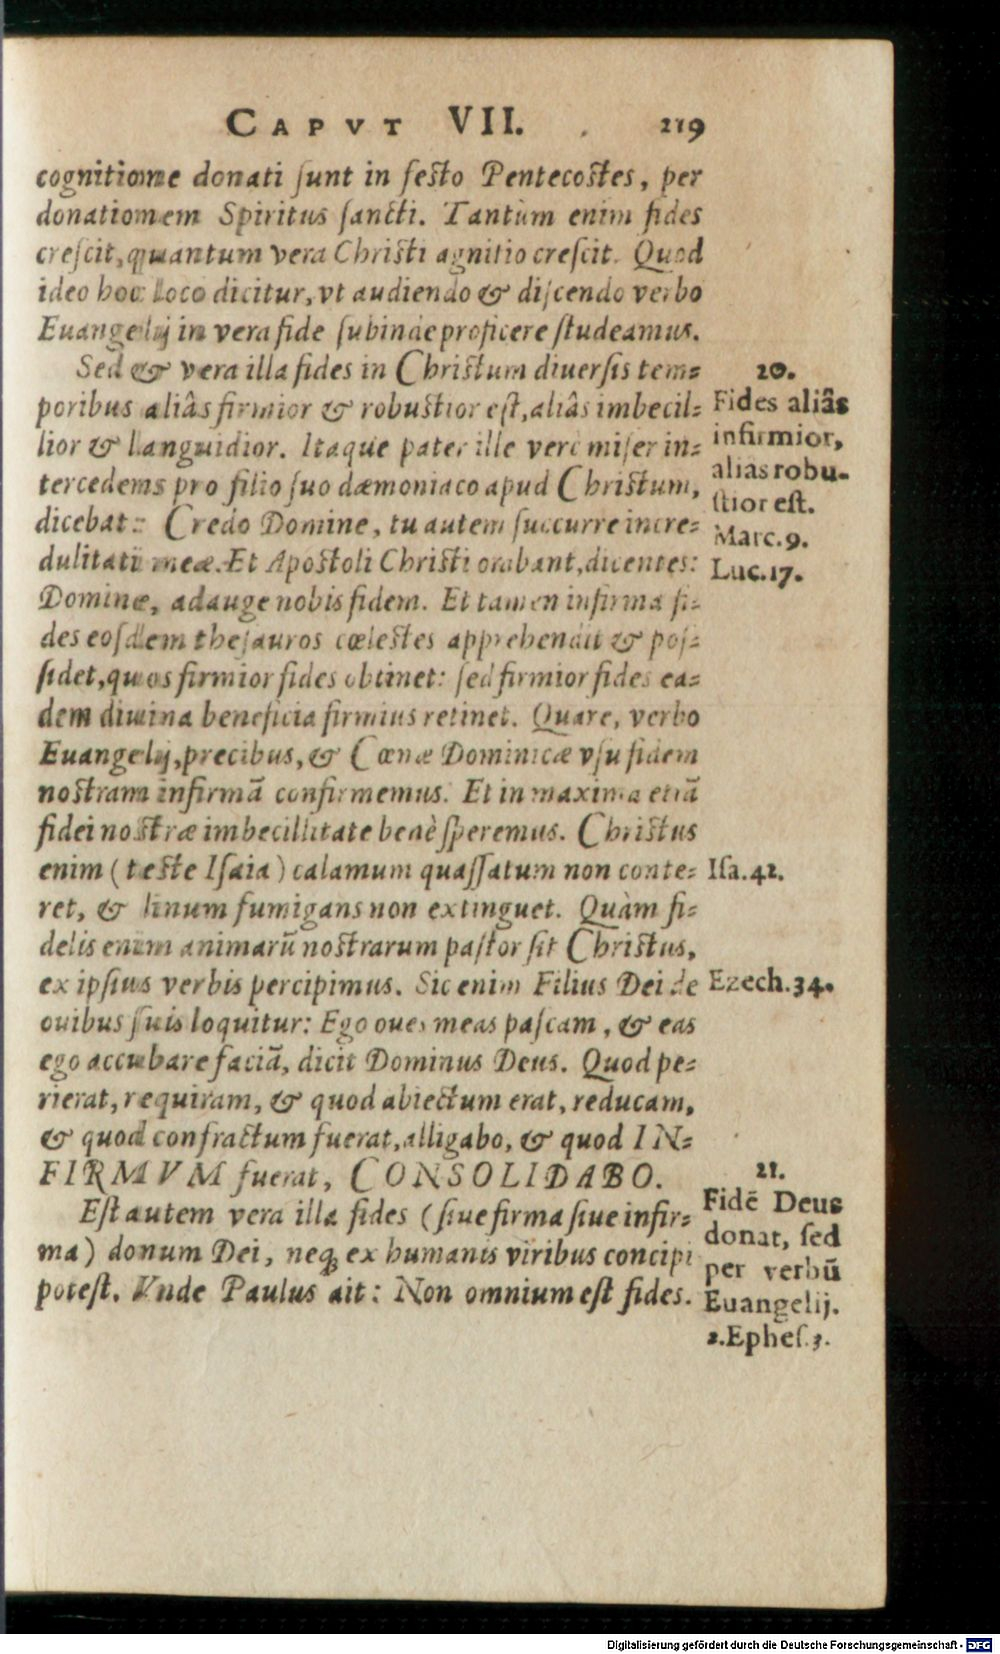 CAPVT VII. 219
cognitione donati ſunt in feſto Pentecoſtes, per
donationem Spiritus ſancti. Tantùm enim fides
creſcit, quantum vera Chriſti agnitio creſcit. Quod
ideo hoc loco dicitur, vt audiendo & diſcendo verbo
Euangelij in vera fide ſubinde proficere ſtudeamus.
Sed & vera illa fides in Chriſtum diuerſis tem⸗
poribus aliâs firmior & robuſtior eſt, aliâs imbecil⸗
lior & languidior. Itaque pater ille verè miſer in⸗
tercedens pro filio ſuo dæmoniaco apud Chriſtum,
dicebat: Credo Domine, tu autem ſuccurre incre⸗
dulitati meæ. Et Apoſtoli Chriſti orabant, dicentes:
Domine, adauge nobis fidem. Et tamen infirma fi⸗
des eoſdem theſauros cœleſtes apprehendit & poſ⸗
ſidet, quos firmior fides obtinet: ſed firmior fides ea⸗
dem diuina beneficia firmius retinet. Quare, verbo
Euangelij, precibus, & Cœnæ Dominicæ vſu fidem
noſtram infirmā confirmemus. Et in maxima etiā
fidei noſtræ imbecillitate benè ſperemus. Chriſtus
enim (teſte Iſaia) calamum quaſſatum non conte⸗
ret, & linum fumigans non extinguet. Quàm fi⸗
delis enim animarū noſtrarum paſtor ſit Chriſtus,
ex ipſius verbis percipimus. Sic enim Filius Dei de
ouibus ſuis loquitur: Ego oues meas paſcam, & eas
ego accubare faciā, dicit Dominus Deus. Quod pe⸗
rierat, requiram, & quod abiectum erat, reducam,
& quod confractum fuerat, alligabo, & quod IN⸗
FIRMVM fuerat, CONSOLIDABO.
Eſt autem vera illa fides (ſiue firma ſiue infir⸗
ma) donum Dei, neqꝫ ex humanis viribus concipi
poteſt. Vnde Paulus ait: Non omnium eſt fides.
20.
Fides aliâs
infirmior,
alias robu⸗
ſtior eſt.
Marc. 9.
Luc. 17.
Iſa. 42.
Ezech. 34.
21.
Fidē Deus
donat, ſed
per verbū
Euangelij.
2. Epheſ. 3.
Digitalisierung gefördert durch die Deutsche Forschungsgemeinschaft - DFG